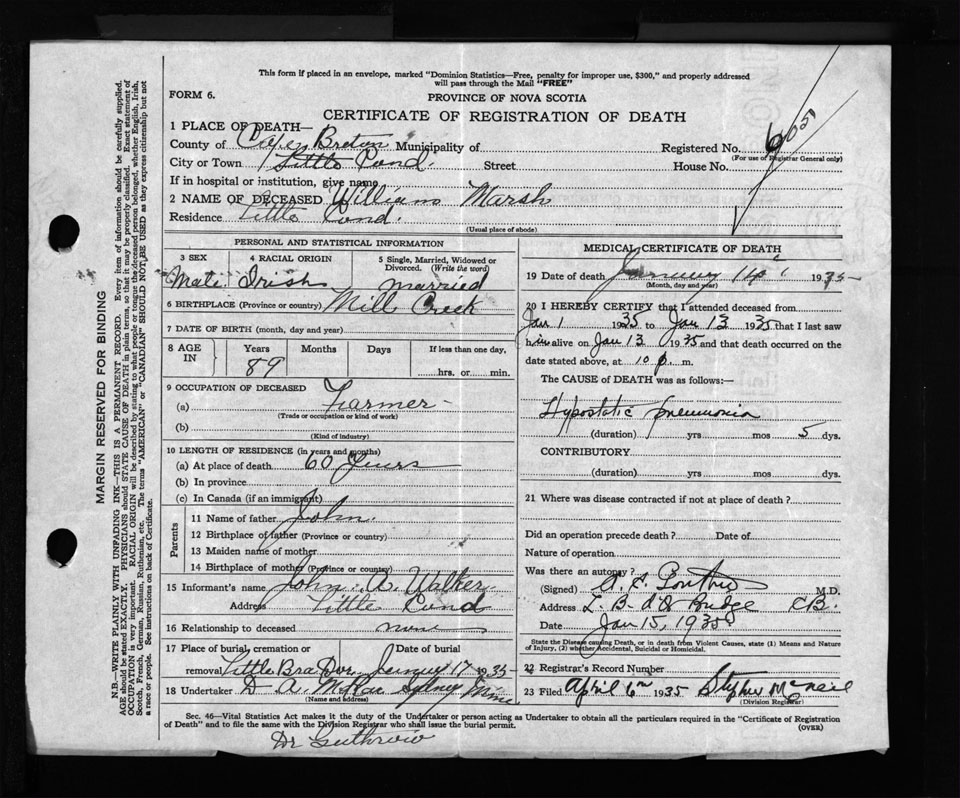 This form if placed in an envelope, marked "Dominion Statistics—Free, penalty for improper use, $300," and properly addressed
will pass through the Mail "FREE"
FORM 6.
PROVINCE OF NOVA SCOTIA
CERTIFICATE OF REGISTRATION OF DEATH
1 PLACE OF DEATH—
County of Cape Breton Municipality of Registered No.
(For use of Registrar General only)
City or Town Little Pond. Street House No.
If in hospital or institution, give name
2 NAME OF DECEASED William Marsh
Residence Little Pond.
(Usual place of abode)
PERSONAL AND STATISTICAL INFORMATION
3 SEX 4 RACIAL ORIGIN 5 Single, Married, Widowed or
Divorced. (Write the word)
Male Irish married
6 BIRTHPLACE (Province or country) Mill Creek
7 DATE OF BIRTH (month, day and year)
8 AGE IN Years Months Days If less than one day,
89 hrs. or min.
9 OCCUPATION OF DECEASED
(a) Farmer
(Trade or occupation or kind of work)
(b)
(Kind of industry)
10 LENGTH OF RESIDENCE (in years and months)
(a) At place of death 60 Years
(b) In province
(c) In Canada (if an immigrant)
Parents
11 Name of father John.
12 Birthplace of father (Province or country)
13 Maiden name of mother
14 Birthplace of mother (Province or country)
15 Informant's name John. A. Walker
Address Little Pond
16 Relationship to deceased none
17 Place of burial, cremation or Date of burial
removal Little Bra Dor. 17 1935
18 Undertaker D A. McRae Sydney Mine
(Name and address)
MEDICAL CERTIFICATE OF DEATH
19 Date of death January 14 1935
(Month, day and year)
20 I HEREBY CERTIFY that I attended deceased from
Jan 1 1935 to Jan 13 1935 that I last saw
him alive on Jan 13 1935 and that death occurred on the
date stated above, at 10 p. m.
The CAUSE OF DEATH was as follows:—
Hypostatic pneumonia
(duration) yrs mos 5 dys.
CONTRIBUTORY
(duration) yrs mos dys.
21 Where was disease contracted if not at place of death?
Did an operation precede death? Date of
Nature of operation
Was there an autopsy?
(Signed) M.D.
Address L. B. d'Or Bridge C.B.
Date Jan 15, 1935
State the Disease causing Death, or in death from Violent Causes, state (1) Means and Nature
of Injury, (2) whether Accidental, Suicidal or Homicidal.
22 Registrar's Record Number
23 Filed April 6th 1935 Stephen McNeil
(Division Registrar)
Sec. 46—Vital Statistics Act makes it the duty of the Undertaker or person acting as Undertaker to obtain all the particulars required in the "Certificate of Registration
of Death" and to file the same with the Division Registrar who shall issue the burial permit. (OVER)
Dr
MARGIN RESERVED FOR BINDING
N.B.—WRITE PLAINLY WITH UNFADING INK—THIS IS A PERMANENT RECORD. Every item of information should be carefully supplied.
AGE should be stated EXACTLY. PHYSICIANS should STATE CAUSE OF DEATH in plain terms, so that it may be properly classified. Exact statement of
OCCUPATION is very important. RACIAL ORIGIN will be described by stating to what people or tongue the deceased person belonged, whether English, Irish,
Scotch, French, German, Russian, Ruthenian, etc. The terms "AMERICAN" or "CANADIAN" SHOULD NOT BE USED as they express citizenship but not
a race or people. See instructions on back of Certificate.